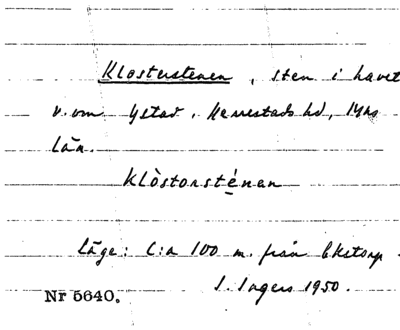 Klosterstenen, sten i havet
v. om Ystad. Herrestads hd, Mhs
län.
Klòstorsténan
Läge: C:a 100 m. från Ekstorp.
I. Ingers 1950.
Nr 5640.